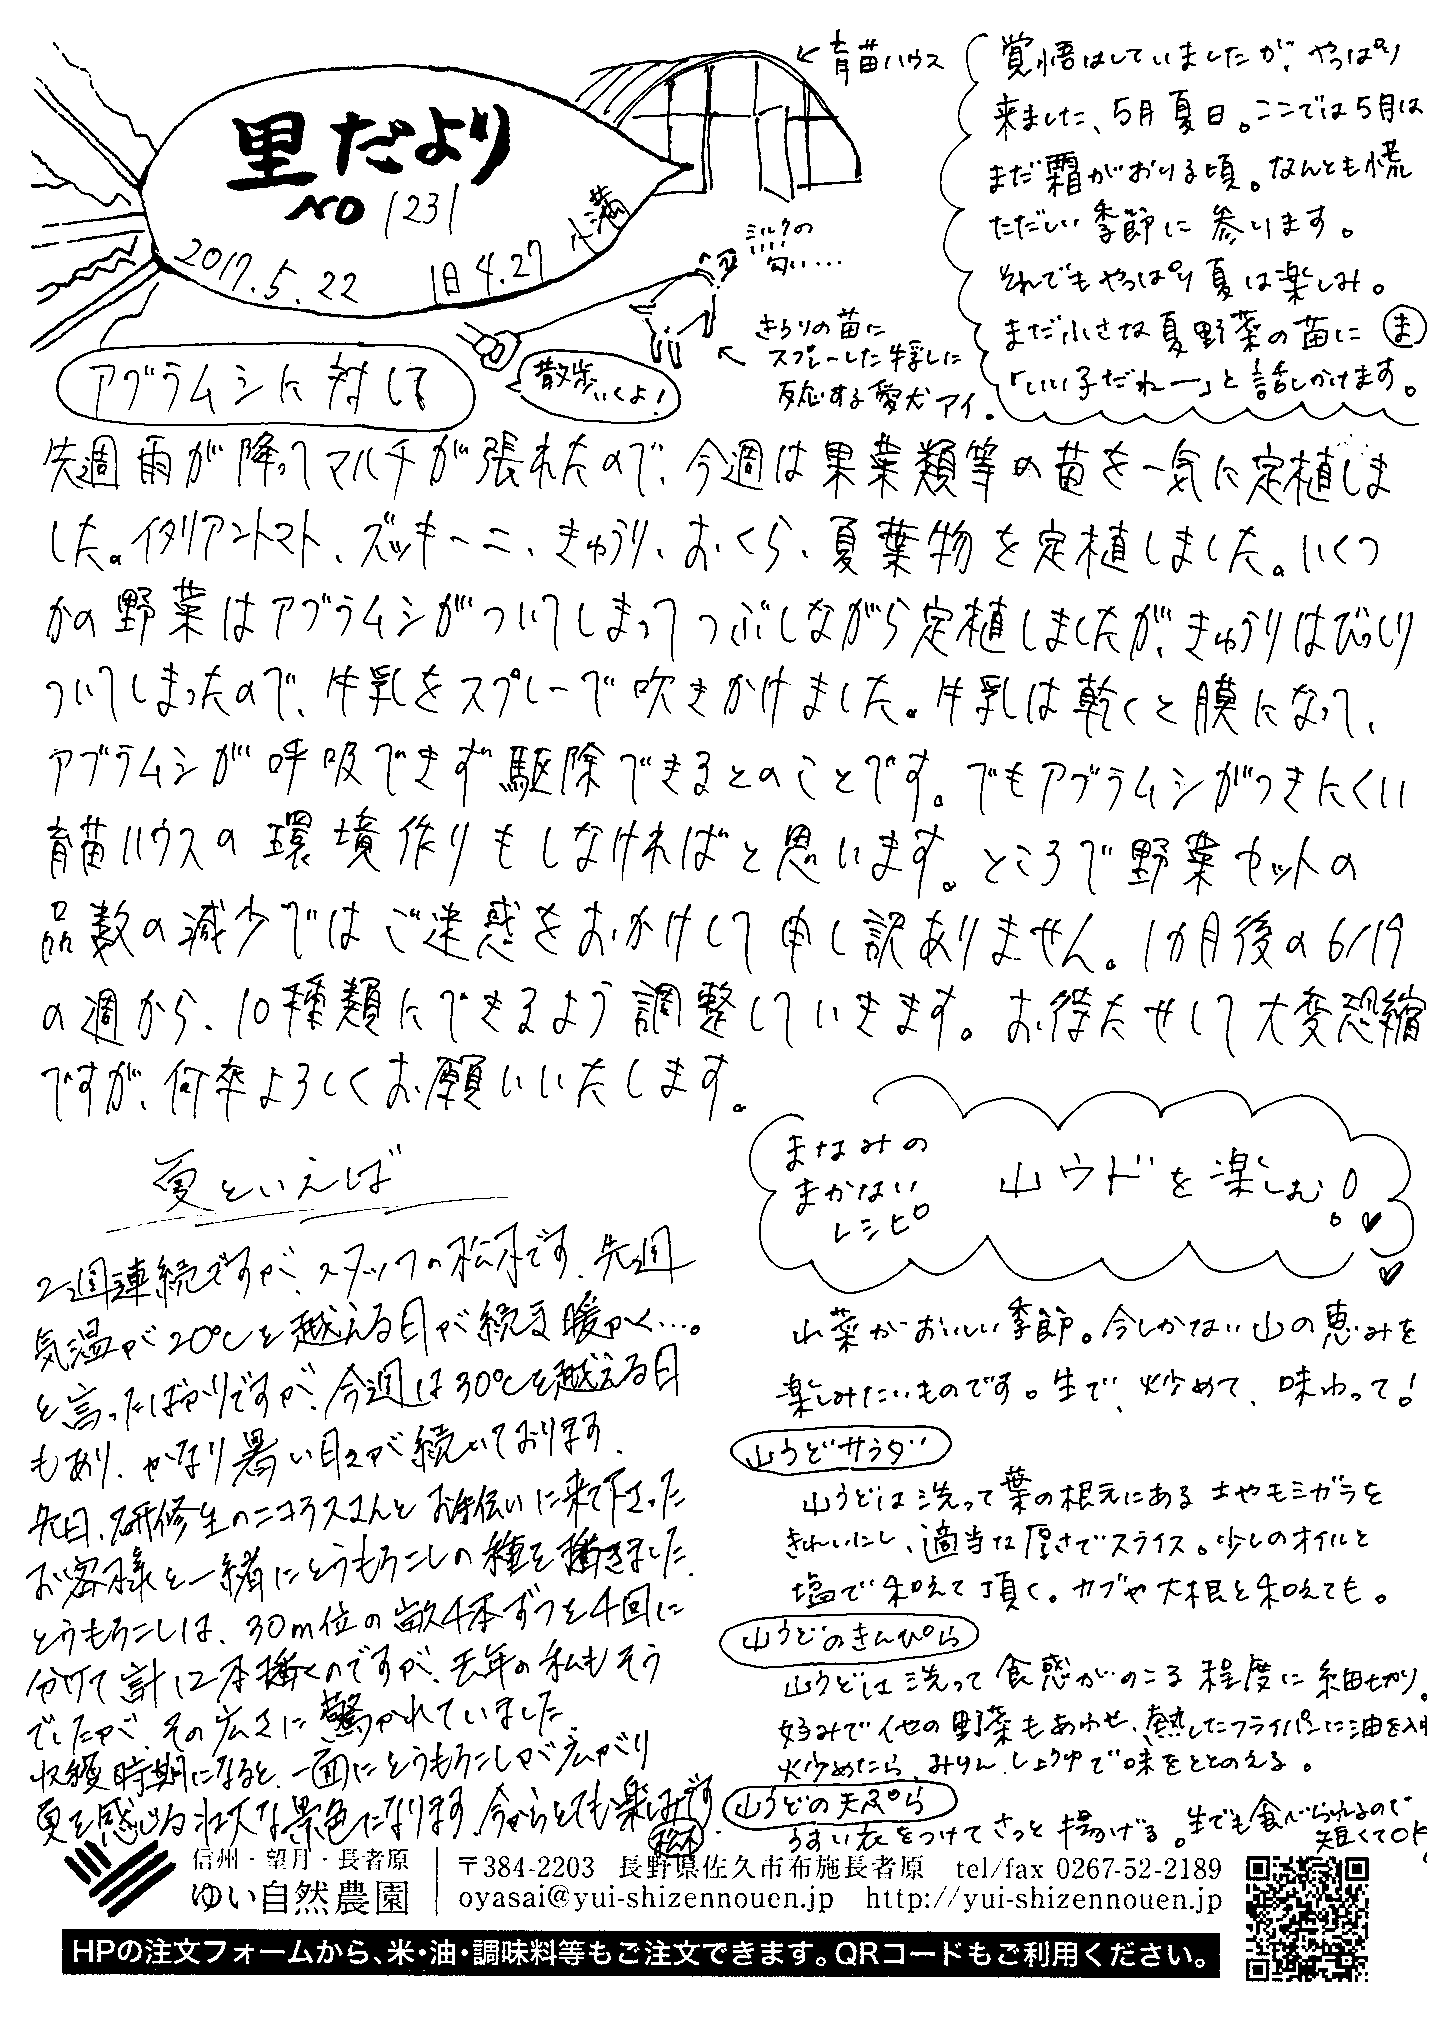 里だより
NO 1231
2017.5.22 旧4.27 小満
←育苗ハウス
ミルクの
匂い…
きうりの苗に
スプレーした牛乳に
反応する愛犬アイ.
散歩いくよ!
覚悟はしていましたが、やっぱり
来ました、5月夏日。ここでは5月は
まだ霜がおりる頃。なんとも慌
ただしい季節に参ります。
それでもやっぱり夏は楽しみ。
まだ小さな夏野菜の苗に ま
「いい子だれー」と話しかけます。
アブラムシに対して
先週雨が降ってマルチが張れたので、今週は果菜類等の苗を一気に定植しま
した。イタリアントマト、ズッキーニ、きゅうり、おくら、夏葉物を定植しました。いくつ
かの野菜はアブラムシがついてしまってつぶしながら定植しましたが、きゅうりはびっしり
ついてしまったので、牛乳をスプレーで吹きかけました。牛乳は乾くと膜になって、
アブラムシが呼吸できず駆除できるとのことです。でもアブラムシがつきにくい
育苗ハウスの環境作りもしなければと思います。ところで野菜セットの
品数の減少ではご迷惑をおかけして申し訳ありません。1か月後の6/19
の週から、10種類にできるよう調整していきます。お待たせして大変恐縮
ですが、何卒よろしくお願いいたします。
夏といえば
2週連続ですが、スタッフの松本です。先週
気温が20℃を越える日が続き暖かく…。
と言ったばかりですが、今週は30℃を越える日
もあり、かなり暑い日々が続いております。
先日、研修生のニコラスさんとお手伝いに来て下さった
お客様と一緒にとうもろこしの種を播きました。
とうもろこしは、30m位の畝4本ずつを4回に
分けて計12本播くのですが、去年の私もそう
でしたが、その広さに驚かれていました。
収穫時期になると、一面にとうもろこしが広がり
夏を感じる壮大な景色になります。今からとても楽しみです。
松本
まなみの
まかない
レシピ
山ウドを楽しむ!
山菜がおいしい季節。今しかない山の恵みを
楽しみたいものです。生で、炒めて、味わって!
山うどサラダ
山うどは洗って葉の根元にある土やモミガラを
きれいにし、適当な厚さでスライス。少しのオイルと
塩で和えて頂く。カブや大根と和えても。
山うどのきんぴら
山うどは洗って食感がのこる程度に細切り。
好みで他の野菜もあわせ、熱したフライパンに油を入れ
炒めたら、みりん、しょうゆで味をととのえる。
山うどの天ぷら
うすい衣をつけてさっと揚げる。生でも食べられるので
短くてOK
信州・望月・長者原
ゆい自然農園
〒384-2203 長野県佐久市布施長者原 tel/fax 0267-52-2189
oyasai@yui-shizennouen.jp http://yui-shizennouen.jp
HPの注文フォームから、米・油・調味料等もご注文できます。QRコードもご利用ください。